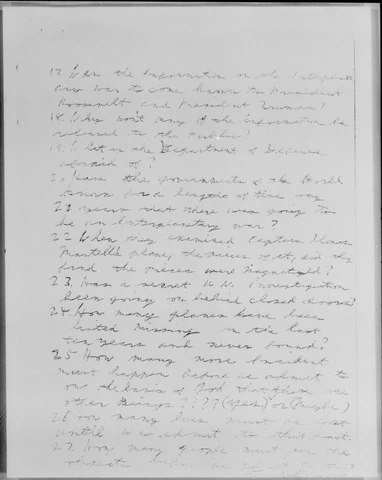 17. Was the Information on the Interplanet
ary War to come known to President
Roosevelt and President Truman?
18. Why won't any of the information be
released to the Public?
19. What is the Department of Defense
afraid of?
20. Have the Governments of the World
known for a length of time say
21 years that there was going to
be an Interplanetary war?
22. When they examined Captain Thomas
Mantell's plane, the pieces of it, did they
find the pieces were Magnetized?
23. Has a secret U.N. Investigation
been going on behind closed doors?
24. How many planes have been
listed missing in the last
ten years and never found?
25. How many more Incident
must happen before we admit to
on the basis of God that there are
other Beings???? (Yes) or (People)
26. How many lives must be lost
until we admit to that fact.
27. How many people must see the
objects before we